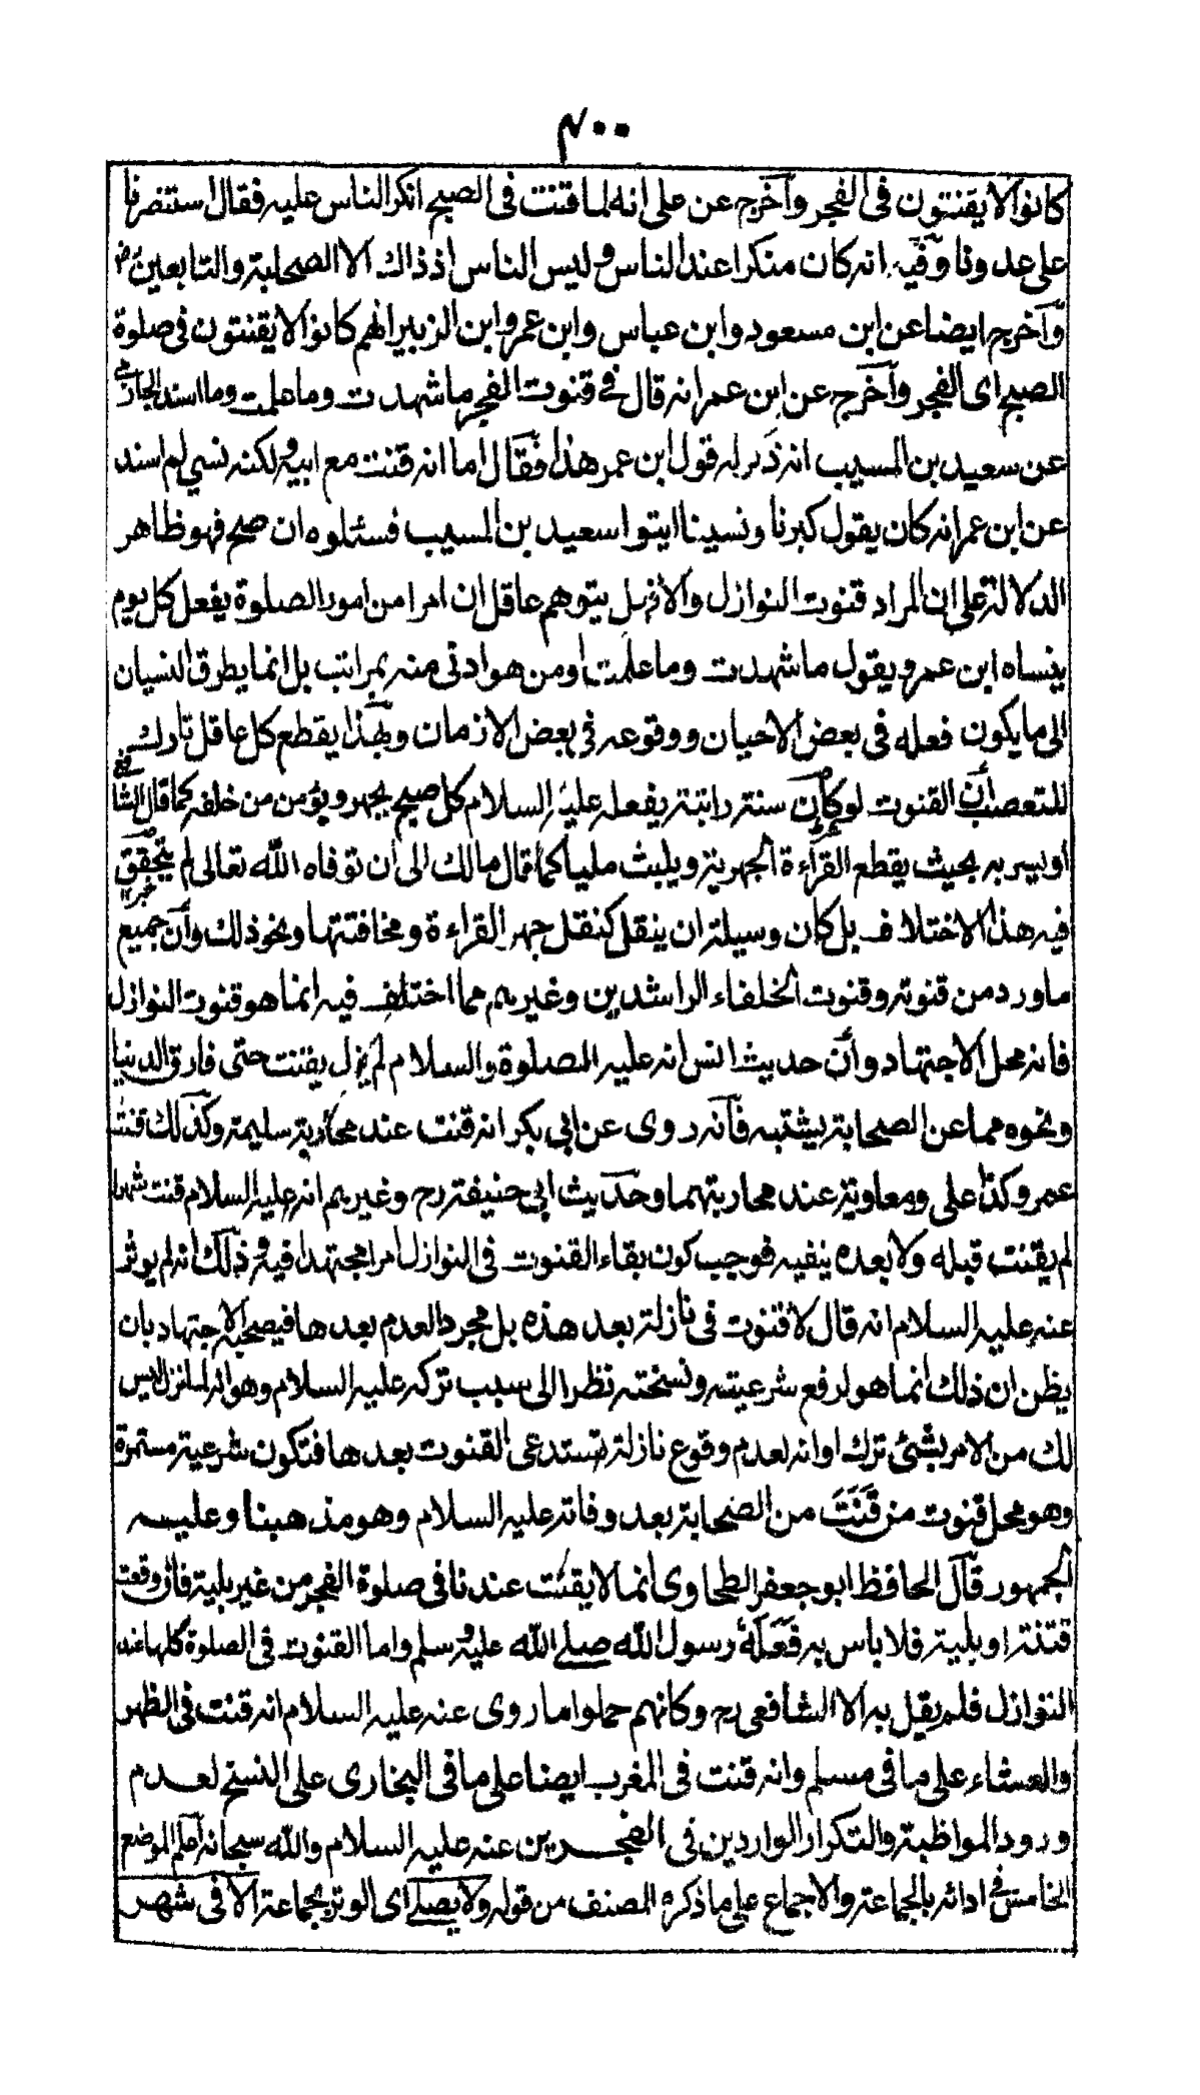 ٤٠٠
كانوا لا يقنتون فى الفجر وآخرج عن على انه لما قنت فى الصبح انكر الناس عليه فقال استنصرنا
على عدونا وفيه انه كان منكرا عند الناس وليس الناس اذ ذاك الا الصحابة والتابعين رض
وآخرج ايضا عن ابن مسعود وابن عباس وابن عمر وابن الزبير انهم كانوا لا يقنتون فى صلوة
الصبح اى الفجر وآخرج عن ابن عمر انه قال فى قنوت الفجر ما شهدت وما علمت وما اسند الحازمى
عن سعيد بن المسيب انه ذكر له قول ابن عمر هذا فقال اما انه قنت مع ابيه ولكنه نسي ثم اسند
عن ابن عمر انه كان يقول كبرنا ونسينا ايتوا سعيد بن المسيب فسئلوه ان صح فهو ظاهر
الدلالة على ان المراد قنوت النوازل والا فهل يتوهم عاقل ان امرا من امور الصلوة يفعل كل يوم
ينساه ابن عمر ويقول ما شهدت وما علمت او من هو ادنى منه بمراتب بل انما يطرق النسيان
الى ما يكون فعله فى بعض الاحيان ووقوعه فى بعض الازمان وبهذا يقطع كل عاقل تارك
للتعصب أن القنوت لو كان سنة راتبة يفعله عليه السلام كل صبح يجهر ويؤمن من خلفه كما قال الشافعى
او يسر به بحيث يقطع القراءة الجهرية ويلبث مليا كما قال مالك الى ان توفاه الله تعالى لم يتحقق
فيه هذا الاختلاف بل كان وسيلة ان ينقل كنقل جهر القراءة ومخافتتها ونحو ذلك وأن جميع
ما ورد من قنوته وقنوت الخلفاء الراشدين وغيرهم مما اختلف فيه انما هو قنوت النوازل
فانه محل الاجتهاد وأن حديث انس انه عليه الصلوة والسلام لم يزل يقنت حتى فارق الدنيا
ونحوه مما عن الصحابة يشتبه فآنه روى عن ابى بكر انه قنت عند محاربة سليمة وكذلك قنت
عمر وكذا على ومعاوية عند محاربتهما وحديث ابى حنيفة رح وغيرهم انه عليه السلام قنت شهرا
لم يقنت قبله ولا بعده ينفيه فوجب كون بقاء القنوت فى النوازل امرا مجتهدا فيه وذلك انه لم يوثر
عنه عليه السلام انه قال لا قنوت فى نازلة بعد هذه بل مجرد العدم بعدها فيصح الاجتهاد بان
يظن ان ذلك انما هو لرفع شرعيته ونسخته نظرا الى سبب تركه عليه السلام وهو انه لما نزل ليس
لك من الامر بشئ ترك او انه لعدم وقوع نازلة تستدعى القنوت بعدها فتكون شرعية مستمرة
وهو محل قنوت من قَنَتَ من الصحابة بعد وفاته عليه السلام وهو مذهبنا وعليه
الجمهور قآل الحافظ ابو جعفر الطحاوى انما لا يقنت عندنا فى صلوة الفجر من غير بلية فان وقعت
فتنة او بلية فلا باس به فَعَلَهُ رسول الله صلى الله عليه وسلم واما القنوت فى الصلوة كلها عند
النوازل فلم يقل به الا الشافعى رح وكانهم حملوا ما روى عنه عليه السلام انه قنت فى الظهر
والعشاء على ما فى مسلم وانه قنت فى المغرب ايضا على ما فى البخارى على النسخ لعدم
ورود المواظبة والتكرار الواردين فى الفجر ين عنه عليه السلام والله سبحانه اعلم الموضع
الخامس فى ادائه بالجماعة والاجماع على ما ذكره المصنف من قوله ولا يصلى اى الوتر بجماعة الا فى شهر